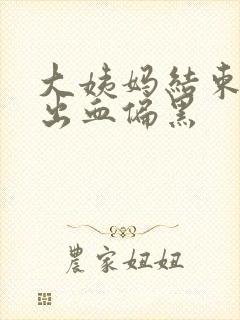 大姨妈结束
出血偏黑
農家妞妞